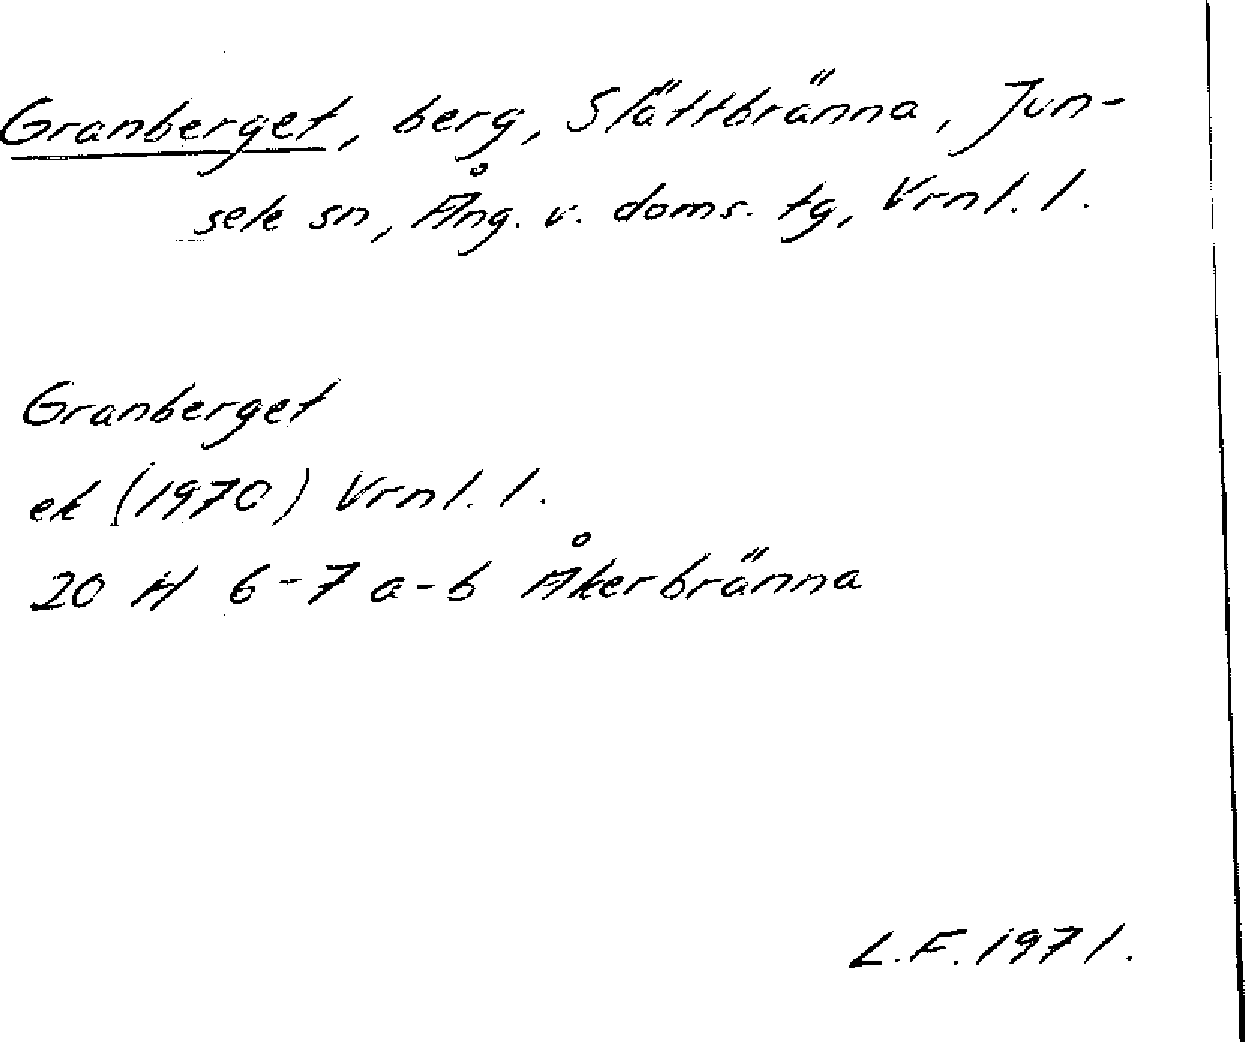 Granberget, berg, Slättbränna, Jun-
sele sn, Ång. v. doms. tg, Vrnl. l.
Granberget
ek (1970) Vrnl. l.
20 H 6-7 a-b Åkerbränna
L.F. 1971.